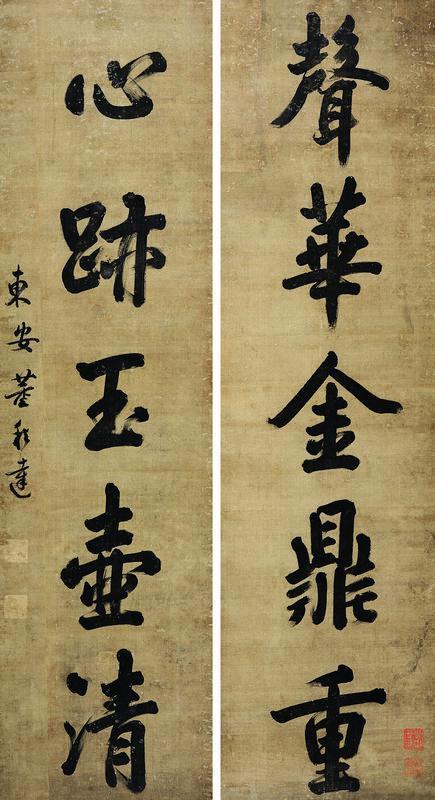 聲華金鼎重
心跡玉壺清
東安董秋達